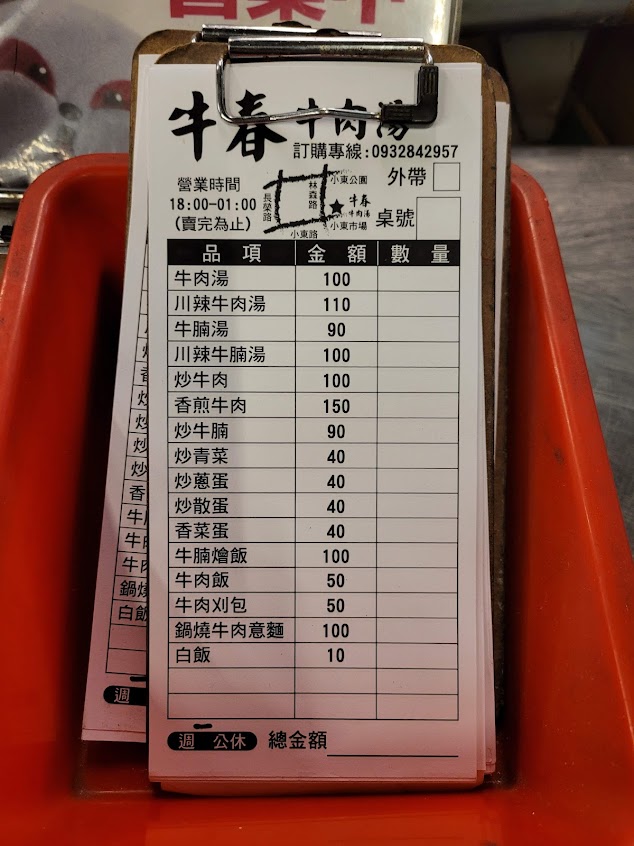 牛春 牛肉湯
訂購專線:0932842957
營業時間
18:00-01:00
(賣完為止)
長榮路
林森路
小東公園
牛春
牛肉湯
小東市場
小東路
外帶
桌號
品項 金額 數量
牛肉湯 100
川辣牛肉湯 110
牛腩湯 90
川辣牛腩湯 100
炒牛肉 100
香煎牛肉 150
炒牛腩 90
炒青菜 40
炒蔥蛋 40
炒散蛋 40
香菜蛋 40
牛腩燴飯 100
牛肉飯 50
牛肉刈包 50
鍋燒牛肉意麵 100
白飯 10
週一公休 總金額
白飯
週